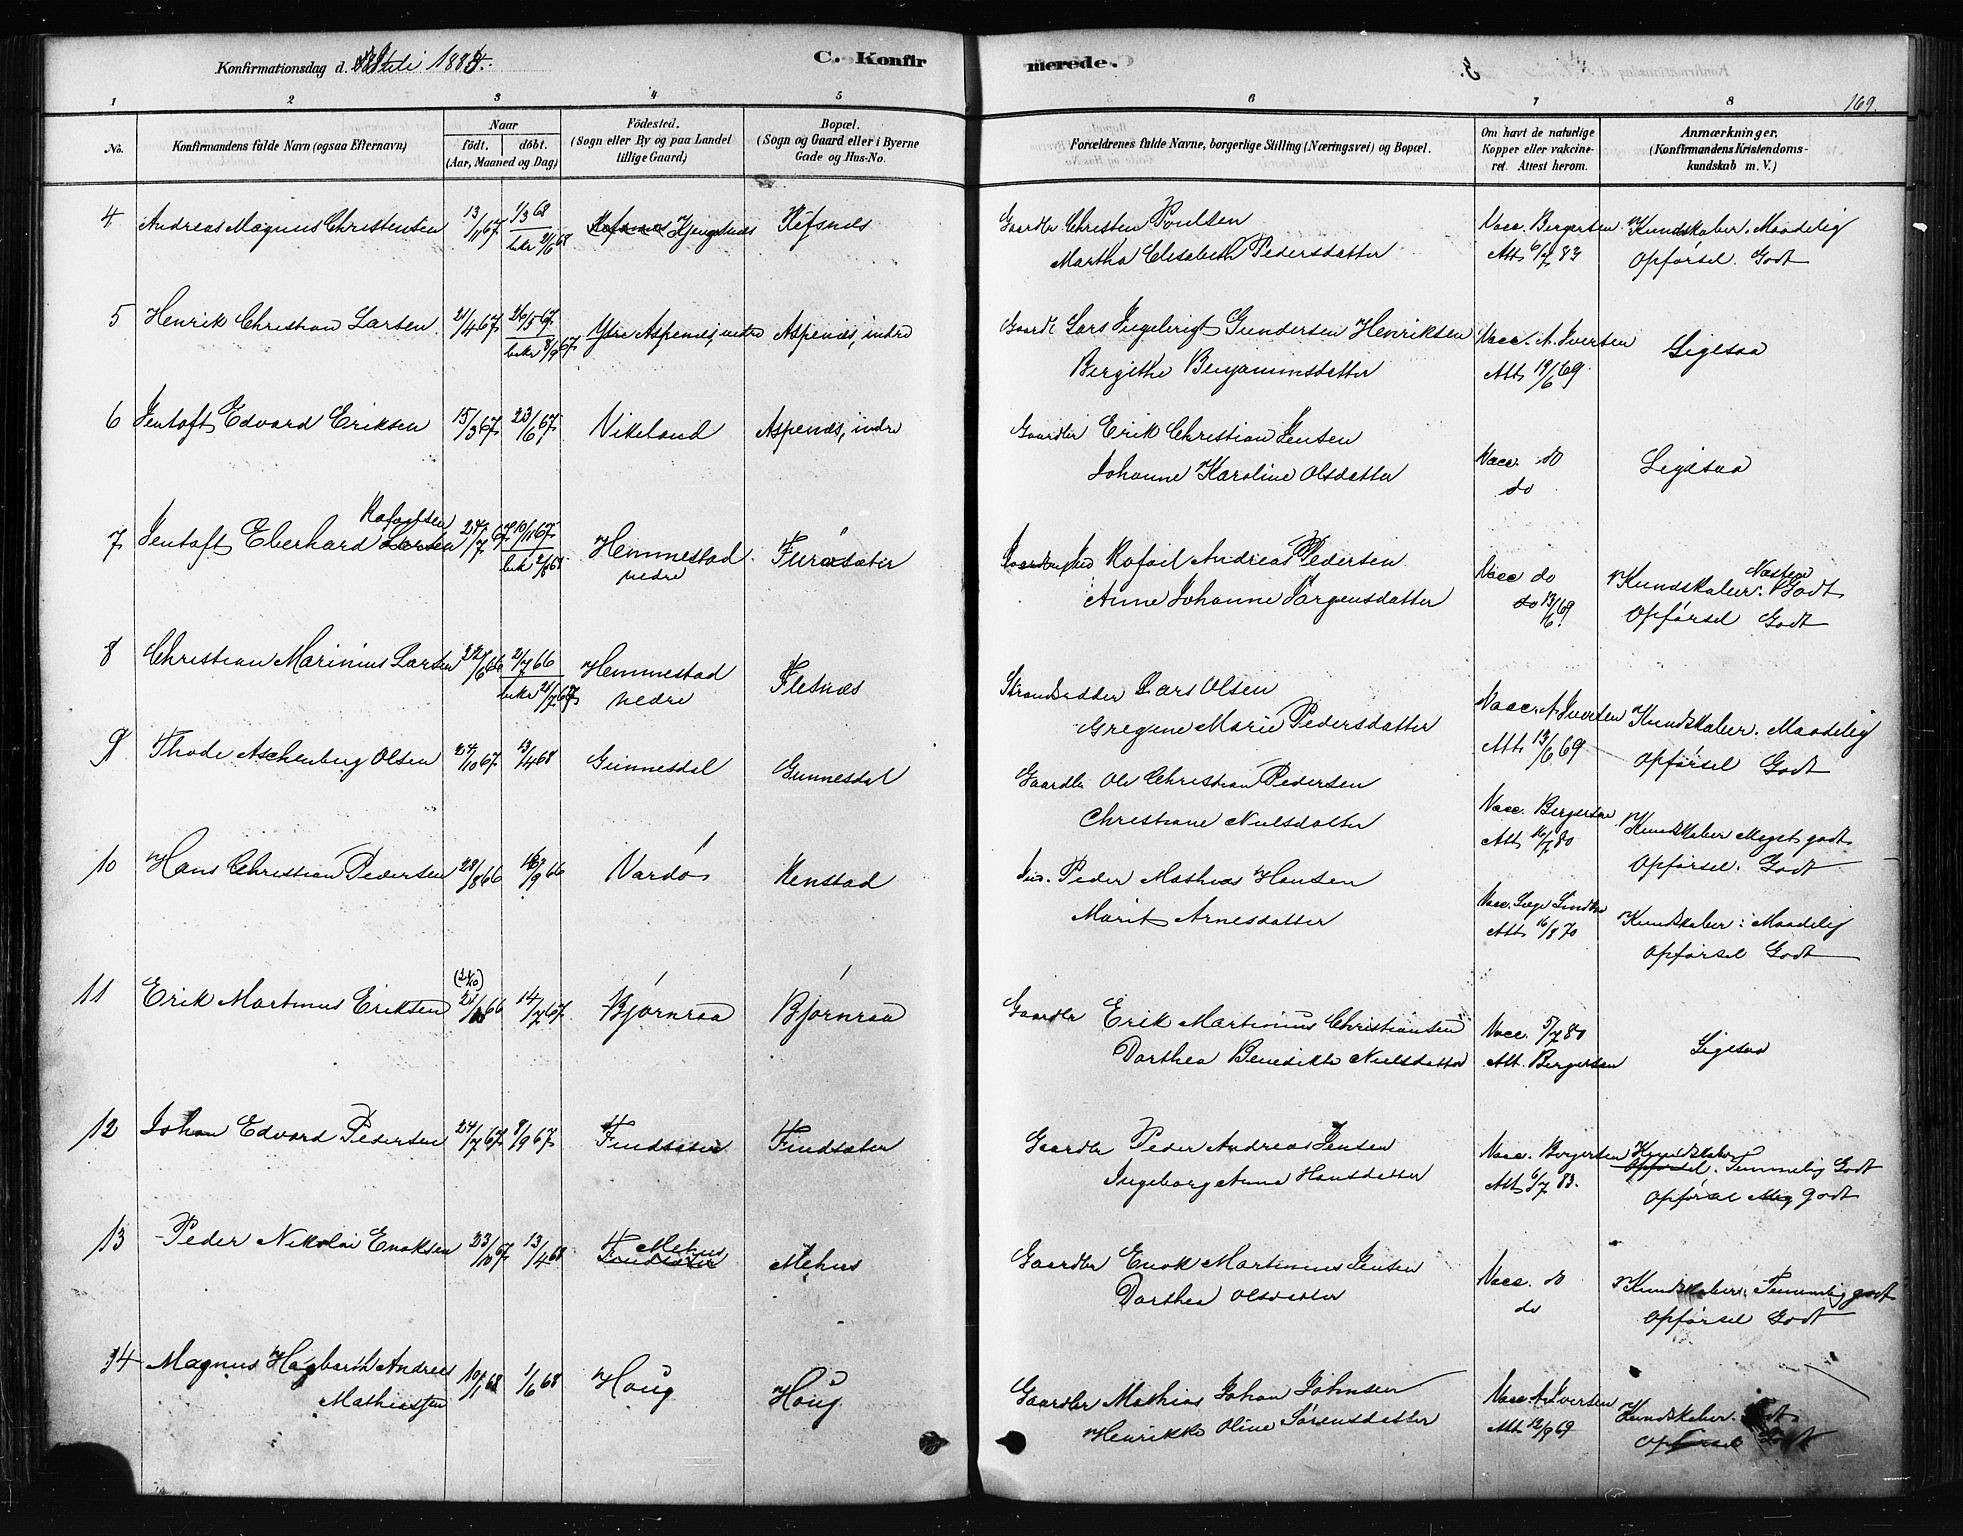 Konfirmationsdag d. 8 Juli 1883.
C. Konfirmerede.
169.
1 2 3 4 5 6 7 8
No.
Konfirmandens fulde Navn (ogsaa Efternavn)
Naar
födt. döbt.
(Aar, Maaned og Dag)
Födested.
(Sogn eller By og paa Landet
tillige Gaard)
Bopæl.
(Sogn og Gaard eller i Byerne
Gade og Hus-No.
Forældrenes fulde Navne, borgerlige Stilling (Næringsvei) og Bopæl.
Om havt de naturlige
Kopper eller vakcine-
ret. Attest herom.
Anmærkninger.
(Konfirmandens Kristendoms-
kundskab m. V.)
4 Andreas Magnus Christensen 13/11 67 1/3 68 Kjengsnæs Refsnæs
bekr 2/6 68
Gaardbr Christen Poulsen Vacc. Bergersen Kundskaber. Maadelig
Martha Elisabeth Pedersdatter Att. 6/7 83 Opførsel. Godt
5 Henrik Christian Larsen. 21/4 67 26/5 67 Aspenæs, indre Aspenæs, indre
bekr 8/9 67
Gaardb Lars Ingebrigt Gundersen Henriksen Vacc. A. Iversen Ligesaa
Bergithe Benjaminsdatter Att. 19/6 69
6 Jentoft Edvard Eriksen 15/3 67 23/6 67 Vikeland Aspenæs, indre
Gaardbr Erik Christian Jensen Vacc. do Ligesaa
Johanne Karoline Olsdatter do
7 Jentoft Eberhard Larsen Rafaelsen 24/7 67 10/11 67 Hemmestad nedre Furøsæter
bekr 2/6 68
Rafael Andreas Pedersen Vacc do Kundskaber. Næsten Godt
Anne Johanne Jørgensdatter do 13/6 69 Opførsel Godt
8 Christian Marinius Larsen 22/6 66 2/7 66 Hemmestad nedre Flesnæs
bekr 21/7 67
Strandsidder Lars Olsen Vacc. A. Iversen Kundskaber. Maadelig
Gregine Marie Pedersdatter Att. 13/6 69 Opførsel Godt
9 Thode Aschenberg Olsen 24/10 67 13/4 68 Gunnesdal Gunnesdal
Gaardbr Ole Christian Pedersen Vacc. Bergersen Kundskaber Meget godt
Christiane Nielsdatter Att. 16/7 80 Opførsel. Godt
10 Hans Christian Pedersen 28/8 66 /9 66 Vardø Renstad
Ins. Peder Mathias Hansen Vacc. Læge Kundskaber: Maadelig
Marit Arnesdatter Att. 16/8 70 Opførsel Godt
11 Erik Martinus Eriksen 66 14/7 67 Bjørnraa Bjørnraa
Gaardbr Erik Martinius Christiansen Vacc. 5/7 80 Ligesaa
Dorthea Benedikte Nielsdatter Att. Bergersen
12 Johan Edvard Pedersen 24/7 67 8/9 67 Findsæter Findsæter
Gaardbr Peder Andreas Jensen Vacc. Bergersen Kundskaber Opførsel. Temmelig Godt
Ingeborg Anna Hansdatter Att. 6/7 83. Opførsel Meg godt
13 Peder Nikolai Enoksen 23/10 67 13/4 68 Findsæter Mehus Mehus
Gaardbr Enok Martinius Jensen Vacc. do Kundskaber. Temmelig godt
Dorthea Olsdatter do Opførsel Godt
14 Magnus Hagbarth Andreas 10/1 68 1/6 68 Houg Houg
Mathiassen
Gaardbr Mathias Johan Johnsen Vacc. A. Iversen Kundskaber. Godt
Henrikke Oline Sørensdatter Att. 12/9 69 Opførsel Godt